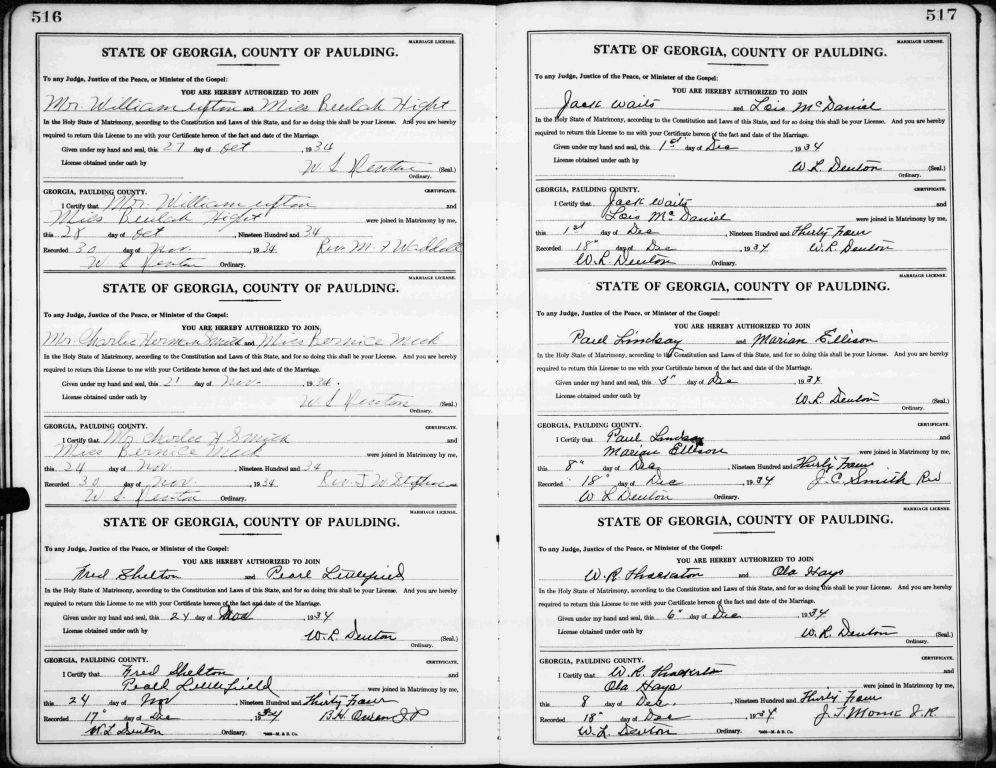 516
MARRIAGE LICENSE.
STATE OF GEORGIA, COUNTY OF PAULDING.
To any Judge, Justice of the Peace, or Minister of the Gospel:
YOU ARE HEREBY AUTHORIZED TO JOIN
Mr. William and Miss Beulah Hight
In the Holy State of Matrimony, according to the Constitution and Laws of this State, and for so doing this shall be your License. And you are hereby
required to return this License to me with your Certificate hereon of the fact and date of the Marriage.
Given under my hand and seal, this 27 day of Oct , 1934
License obtained under oath by
W L Denton (Seal.)
Ordinary.
GEORGIA, PAULDING COUNTY. CERTIFICATE.
I Certify that Mr. William and
Miss Beulah Hight were joined in Matrimony by me,
this 28 day of Oct , Nineteen Hundred and 34
Recorded 30 day of Nov. , 1934 Rev. M. F.
W L Denton Ordinary.
MARRIAGE LICENSE.
STATE OF GEORGIA, COUNTY OF PAULDING.
To any Judge, Justice of the Peace, or Minister of the Gospel:
YOU ARE HEREBY AUTHORIZED TO JOIN
Mr. Charlie Herman Smith and Miss Bernice Meek
In the Holy State of Matrimony, according to the Constitution and Laws of this State, and for so doing this shall be your License. And you are hereby
required to return this License to me with your Certificate hereon of the fact and date of the Marriage.
Given under my hand and seal, this 21 day of Nov. , 1934.
License obtained under oath by
W L Denton (Seal.)
Ordinary.
GEORGIA, PAULDING COUNTY. CERTIFICATE.
I Certify that Mr Charlie H Smith and
Miss Bernice Meek were joined in Matrimony by me,
this 24 day of Nov , Nineteen Hundred and 34
Recorded 30 day of Nov. , 1934 Rev. J. W.
W L Denton Ordinary.
MARRIAGE LICENSE.
STATE OF GEORGIA, COUNTY OF PAULDING.
To any Judge, Justice of the Peace, or Minister of the Gospel:
YOU ARE HEREBY AUTHORIZED TO JOIN
Fred Shelton and Pearl Littlefield
In the Holy State of Matrimony, according to the Constitution and Laws of this State, and for so doing this shall be your License. And you are hereby
required to return this License to me with your Certificate hereon of the fact and date of the Marriage.
Given under my hand and seal, this 24 day of Nov , 1934
License obtained under oath by
W. L. Denton (Seal.)
Ordinary.
GEORGIA, PAULDING COUNTY. CERTIFICATE.
I Certify that Fred Shelton and
Pearl Littlefield were joined in Matrimony by me,
this 24 day of Nov , Nineteen Hundred and Thirty Four
Recorded 17" day of Dec , 1934 B.H. J.P
W. L. Denton Ordinary.
517
MARRIAGE LICENSE.
STATE OF GEORGIA, COUNTY OF PAULDING.
To any Judge, Justice of the Peace, or Minister of the Gospel:
YOU ARE HEREBY AUTHORIZED TO JOIN
Jack Waits and Lois McDaniel
In the Holy State of Matrimony, according to the Constitution and Laws of this State, and for so doing this shall be your License. And you are hereby
required to return this License to me with your Certificate hereon of the fact and date of the Marriage.
Given under my hand and seal, this 1st day of Dec , 1934
License obtained under oath by
W. L. Denton (Seal.)
Ordinary.
GEORGIA, PAULDING COUNTY. CERTIFICATE.
I Certify that Jack Waits and
Lois McDaniel were joined in Matrimony by me,
this 1st day of Dec , Nineteen Hundred and Thirty Four
Recorded 18" day of Dec , 1934 W. L. Denton
W. L. Denton Ordinary.
MARRIAGE LICENSE.
STATE OF GEORGIA, COUNTY OF PAULDING.
To any Judge, Justice of the Peace, or Minister of the Gospel:
YOU ARE HEREBY AUTHORIZED TO JOIN
Paul Lindsay and Marian Ellison
In the Holy State of Matrimony, according to the Constitution and Laws of this State, and for so doing this shall be your License. And you are hereby
required to return this License to me with your Certificate hereon of the fact and date of the Marriage.
Given under my hand and seal, this 5" day of Dec , 1934
License obtained under oath by
W. L. Denton (Seal.)
Ordinary.
GEORGIA, PAULDING COUNTY. CERTIFICATE.
I Certify that Paul Lindsay and
Marian Ellison were joined in Matrimony by me,
this 8" day of Dec. , Nineteen Hundred and Thirty Four
Recorded 18" day of Dec , 1934 J. C. Smith Rev
W L Denton Ordinary.
MARRIAGE LICENSE.
STATE OF GEORGIA, COUNTY OF PAULDING.
To any Judge, Justice of the Peace, or Minister of the Gospel:
YOU ARE HEREBY AUTHORIZED TO JOIN
W. R. and Ola Hays
In the Holy State of Matrimony, according to the Constitution and Laws of this State, and for so doing this shall be your License. And you are hereby
required to return this License to me with your Certificate hereon of the fact and date of the Marriage.
Given under my hand and seal, this 6" day of Dec , 1934
License obtained under oath by
W. L. Denton (Seal.)
Ordinary.
GEORGIA, PAULDING COUNTY. CERTIFICATE.
I Certify that W. R. and
Ola Hays were joined in Matrimony by me,
this 8 day of Dec. , Nineteen Hundred and Thirty Four
Recorded 18" day of Dec , 1934 J. T.
W. L. Denton Ordinary.